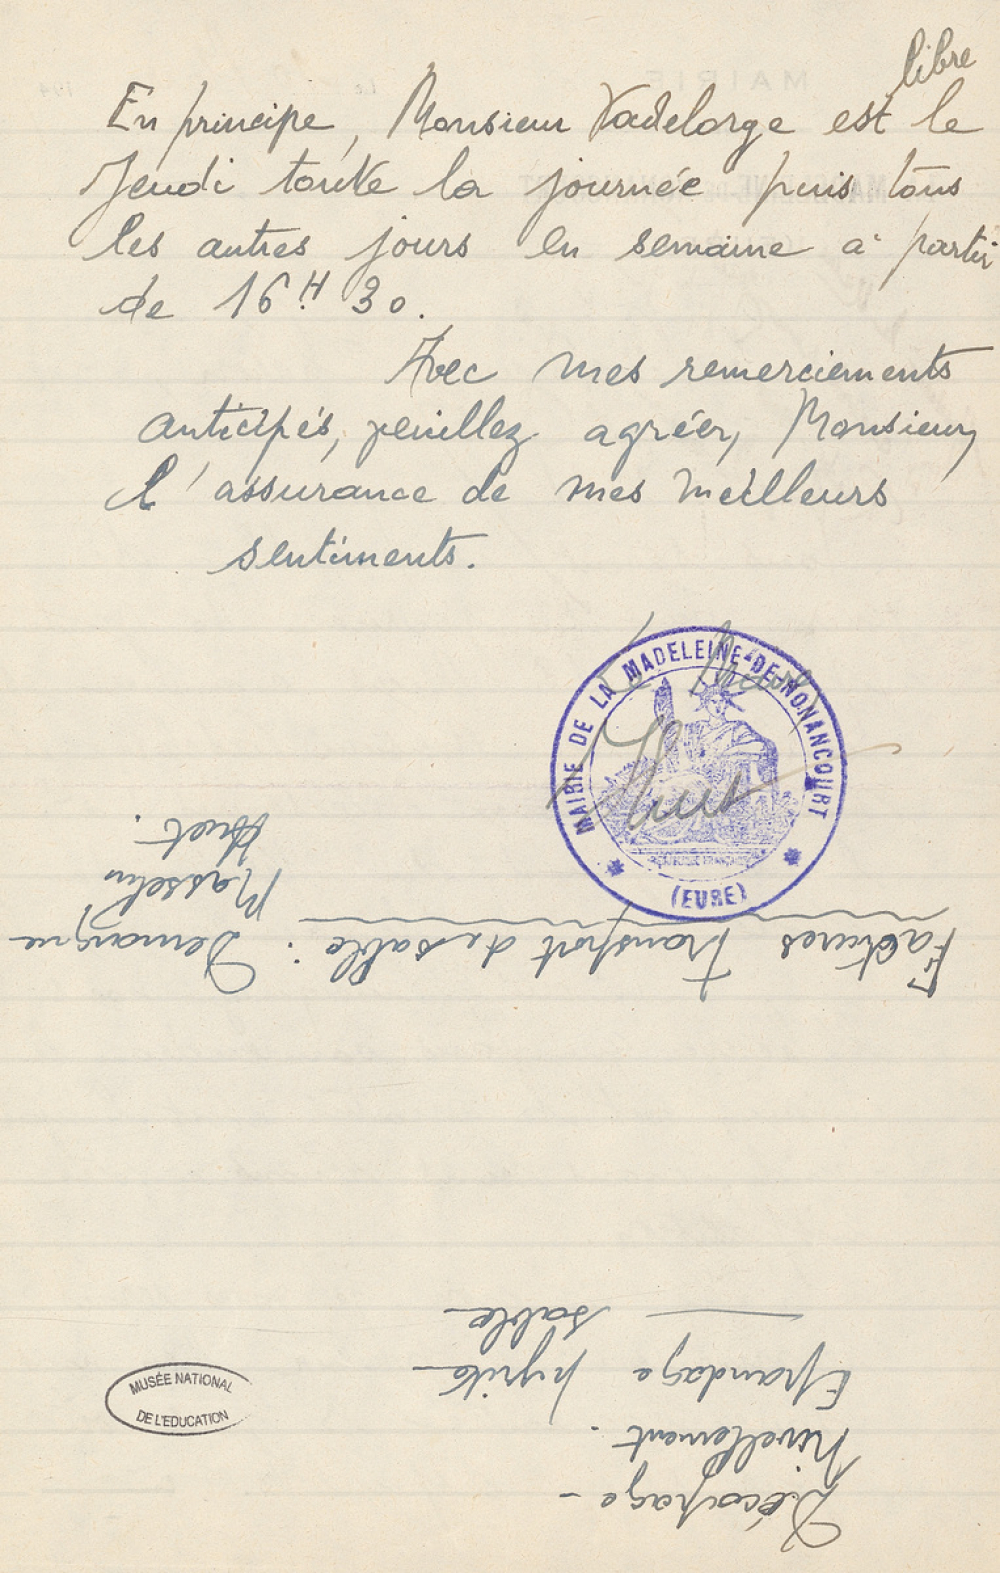 libre
En principe, Monsieur Vadelorge est le
Jeudi toute la journée puis tous
les autres jours en semaine à partir
de 16H 30.
Avec mes remerciements
anticipés, veuillez agréer, Monsieur,
l'assurance de mes meilleurs
sentiments.
Le Maire
MAIRIE DE LA MADELEINE-DE-NONANCOURT
RÉPUBLIQUE FRANÇAISE
(EURE)
Factures transport de sable : Demangne
Masselin
Huet.
Décapage -
Nivellement.
Epandage pyrite
— sable
MUSÉE NATIONAL
DE L'EDUCATION